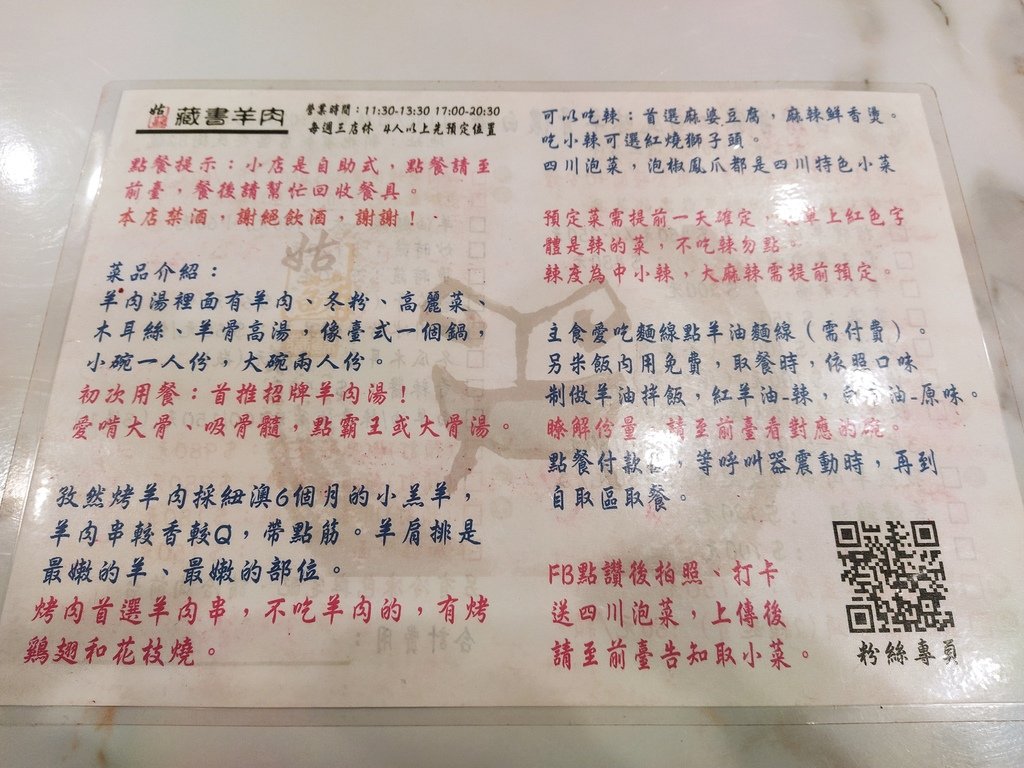 姑蘇 藏書羊肉
營業時間：11:30-13:30 17:00-20:30
每週三店休 4人以上先預定位置
點餐提示：小店是自助式，點餐請至
前臺，餐後請幫忙回收餐具。
本店禁酒，謝絕飲酒，謝謝！
菜品介紹：
羊肉湯裡面有羊肉、冬粉、高麗菜、
木耳絲、羊骨高湯，像臺式一個鍋，
小碗一人份，大碗兩人份。
初次用餐：首推招牌羊肉湯！
愛啃大骨、吸骨髓，點霸王或大骨湯。
孜然烤羊肉採紐澳6個月的小羔羊，
羊肉串較香較Q，帶點筋。羊肩排是
最嫩的羊、最嫩的部位。
烤肉首選羊肉串，不吃羊肉的，有烤
鷄翅和花枝燒。
可以吃辣：首選麻婆豆腐，麻辣鮮香燙。
吃小辣可選紅燒獅子頭。
四川泡菜，泡椒鳳爪都是四川特色小菜
預定菜需提前一天確定，單上紅色字
體是辣的菜，不吃辣勿點。
辣度為中小辣，大麻辣需提前預定。
主食愛吃麵線點羊油麵線（需付費）。
另米飯內用免費，取餐時，依照口味
制做羊油拌飯，紅羊油-辣，白羊油-原味。
瞭解份量，請至前臺看對應的碗。
點餐付款後，等呼叫器震動時，再到
自取區取餐。
FB點讚後拍照、打卡
送四川泡菜，上傳後
請至前臺告知取小菜。
粉絲專頁